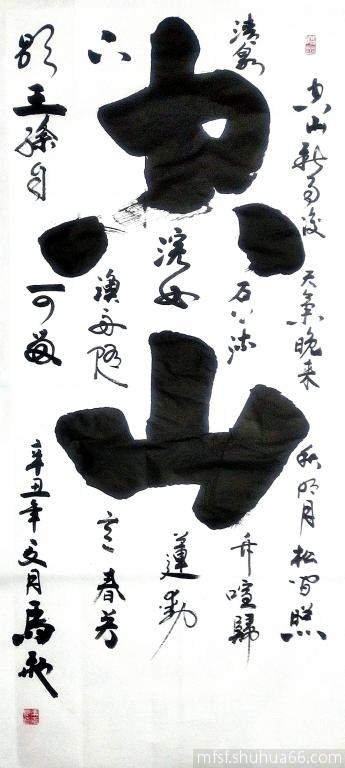 空山
空山新雨後天氣晚来秋明月松間照
清泉石上流竹喧歸
浣女蓮動
下漁舟隨意春芳
歇王孫自可留
辛丑年文月馬
mfsf.shuhua66.com